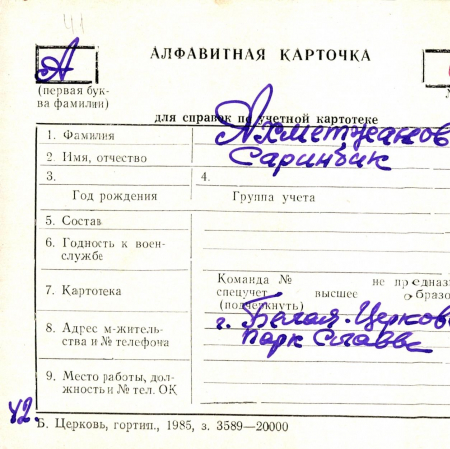 41
АЛФАВИТНАЯ КАРТОЧКА
А
(первая бук-
ва фамилии)
для справок по учетной картотеке
1. Фамилия Ахметжанов
2. Имя, отчество Саринбик
3. 4.
Год рождения Группа учета
5. Состав
6. Годность к воен-
службе
7. Картотека
Команда № не предназ
спецучет высшее образо
(подчеркнуть)
8. Адрес м-житель-
ства и № телефона
г. Белая-Церков
Парк Славы
9. Место работы, дол-
жность и № тел. ОК
42.
Б. Церковь, гортип., 1985, з. 3589—20000